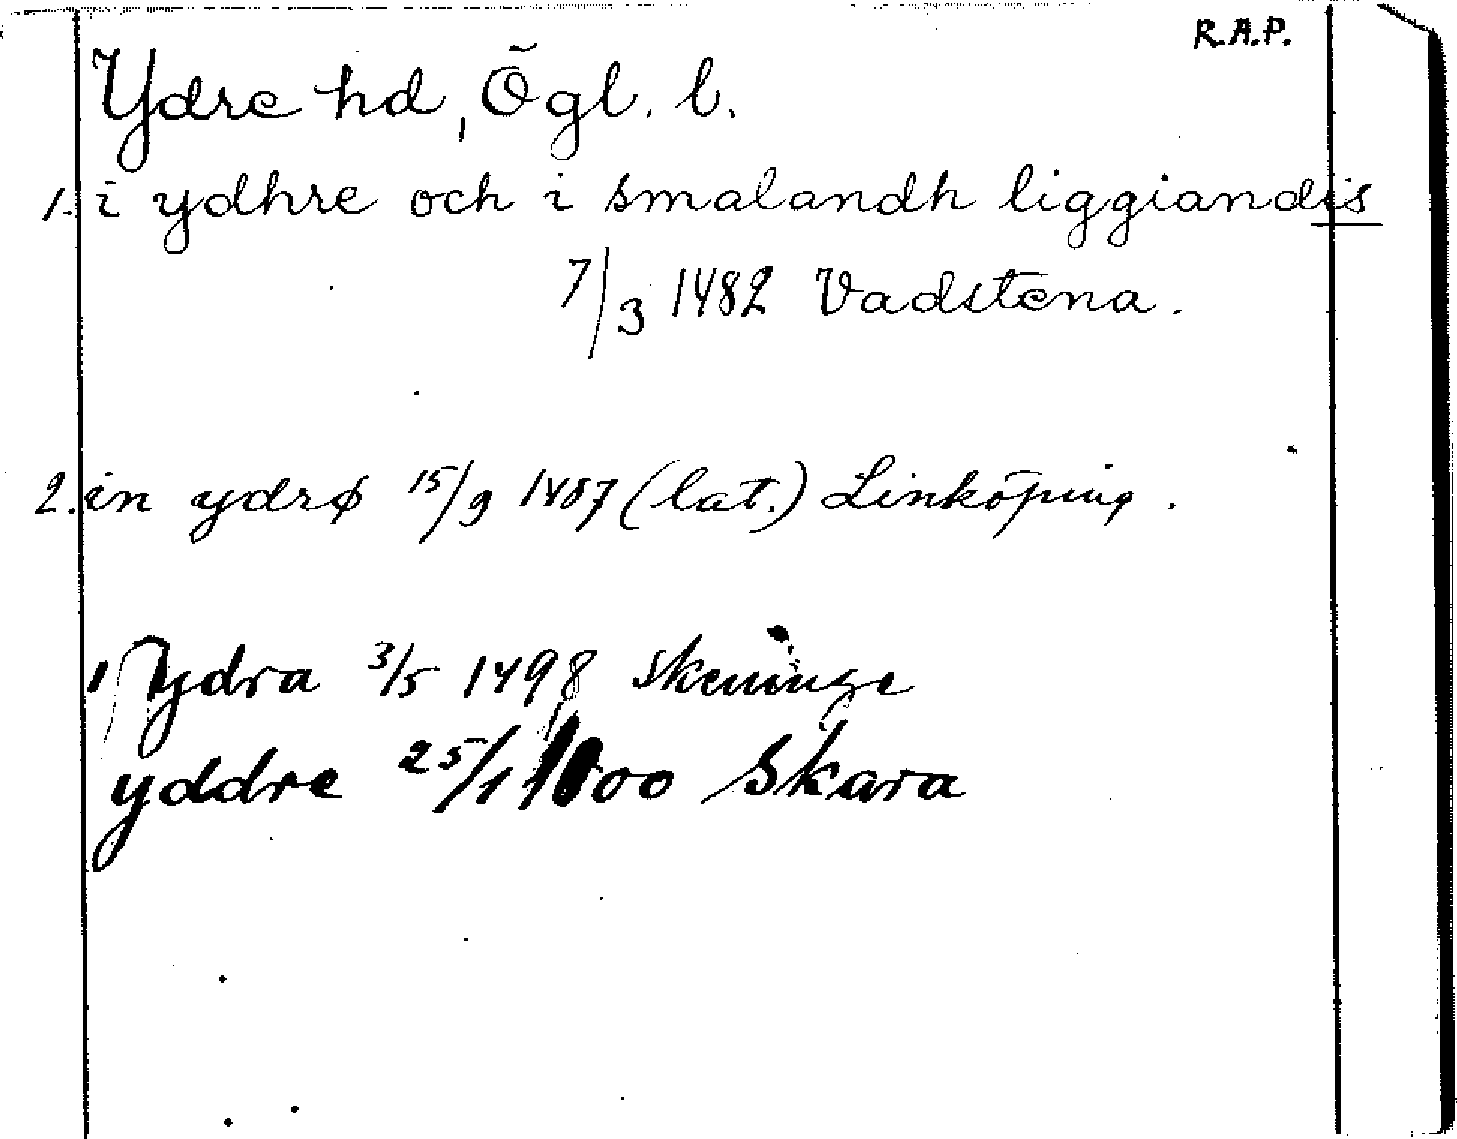 R.A.P.
Ydre hd, Ögl. l.
1. i ydhre och i smalandh liggiandis
7/3 1482 Vadstena.
2. in ydrø 15/9 1487 (lat.) Linköping.
ydra 3/5 1498 Skeninge
yddre 25/1 1500 Skara